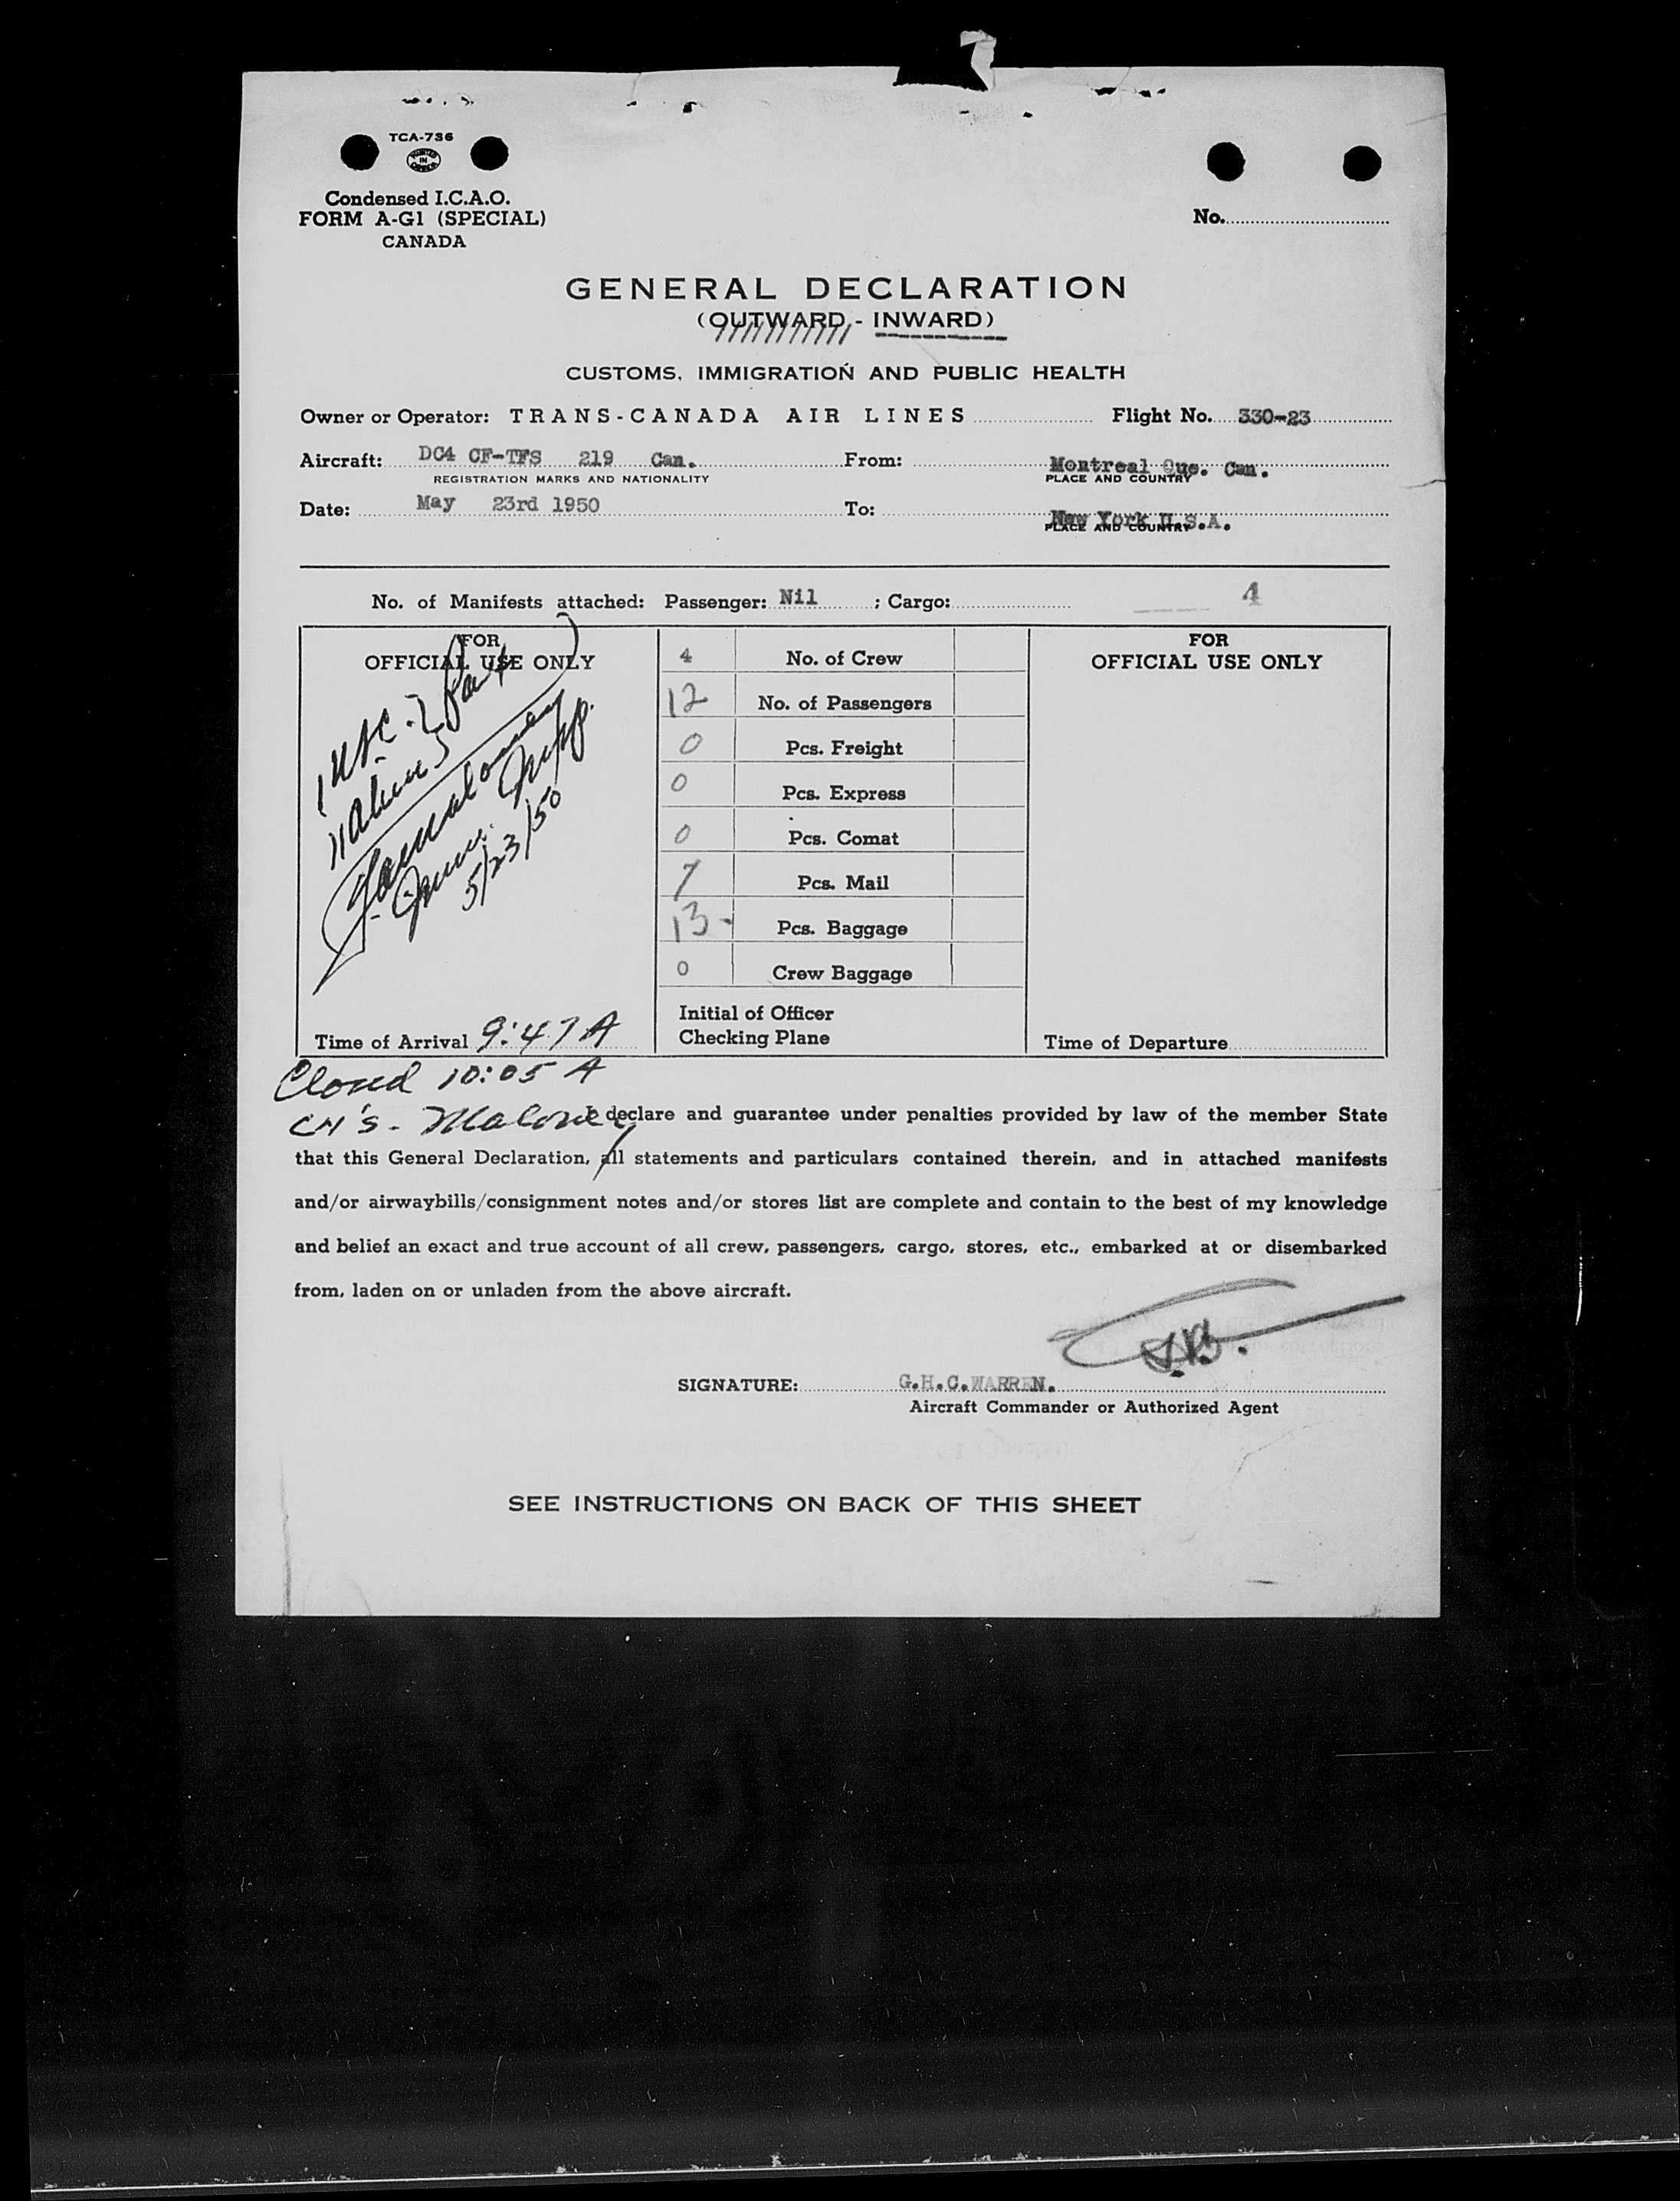 TCA-736
PRINTED IN CANADA
Condensed I.C.A.O.
FORM A-G1 (SPECIAL)
CANADA
No.
GENERAL DECLARATION
(OUTWARD - INWARD)
CUSTOMS, IMMIGRATION AND PUBLIC HEALTH
Owner or Operator: TRANS-CANADA AIR LINES Flight No. 330-23
Aircraft: DC4 CF-TFS 219 Can. From: Montreal Que. Can.
REGISTRATION MARKS AND NATIONALITY PLACE AND COUNTRY
Date: May 23rd 1950 To: New York U.S.A.
PLACE AND COUNTRY
No. of Manifests attached: Passenger: Nil ; Cargo: 4
FOR
OFFICIAL USE ONLY
1 USC
11 aliens
Imm. Insp.
5/23/50
Time of Arrival 9:47 A
4 No. of Crew
12 No. of Passengers
0 Pcs. Freight
0 Pcs. Express
0 Pcs. Comat
7 Pcs. Mail
13 - Pcs. Baggage
0 Crew Baggage
Initial of Officer
Checking Plane
FOR
OFFICIAL USE ONLY
Time of Departure
Closed 10:05 A
Maloney
I declare and guarantee under penalties provided by law of the member State
that this General Declaration, all statements and particulars contained therein, and in attached manifests
and/or airwaybills/consignment notes and/or stores list are complete and contain to the best of my knowledge
and belief an exact and true account of all crew, passengers, cargo, stores, etc., embarked at or disembarked
from, laden on or unladen from the above aircraft.
SIGNATURE: G.H.C.WARREN.
Aircraft Commander or Authorized Agent
SEE INSTRUCTIONS ON BACK OF THIS SHEET